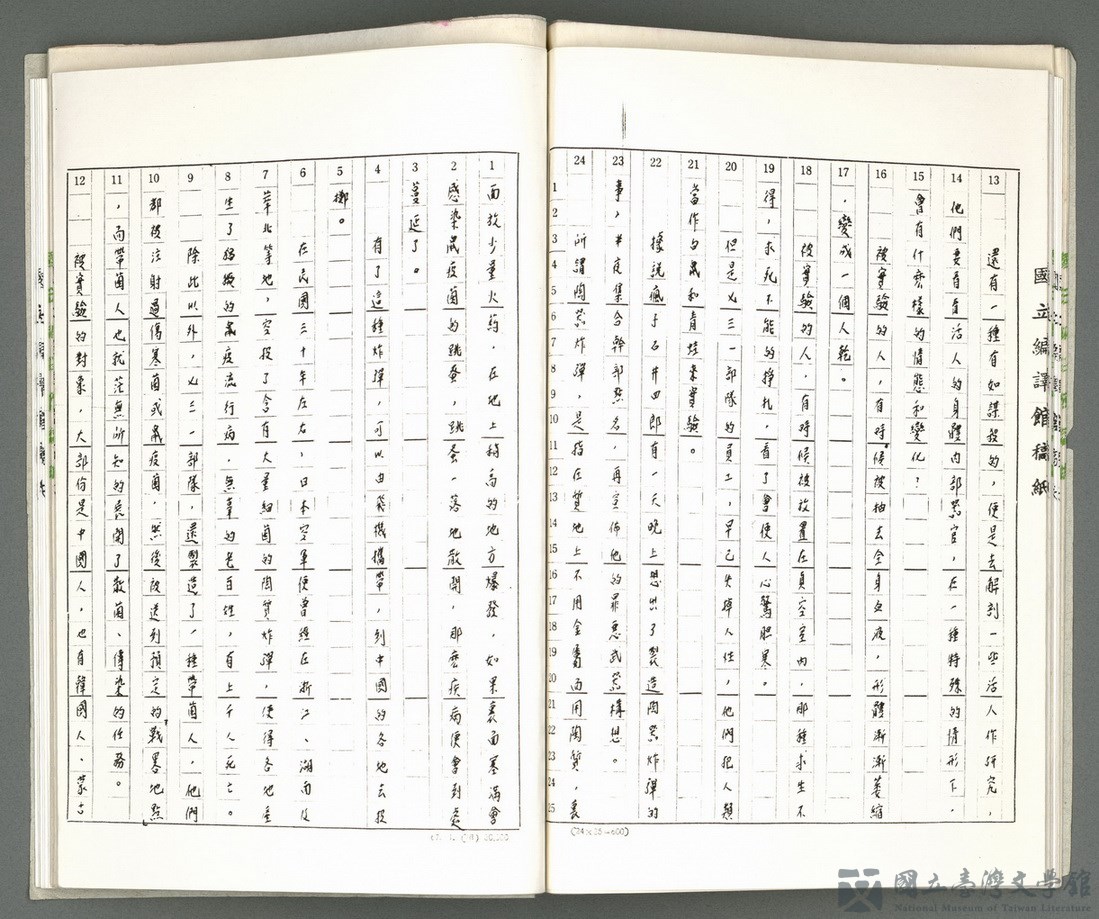 國立編譯館稿紙
13
還有一種有如謀殺的，便是去解剖一些活人作研究，
14
他們要看看活人的身體內部器官，在一種特殊的情形下，
15
會有什麼樣的情態和變化？
16
被實驗的人，有時候被抽去全身血液，形體漸漸萎縮
17
，變成一個人乾。
18
被實驗的人，有時候被放置在真空室內，那種求生不
19
得，求死不能的掙扎，看了會使人心驚胆寒。
20
但是七三一部隊的員工，早已失掉人性，他們把人類
21
當作白鼠和青蛙來實驗。
22
據說瘋子石井四郎有一天晚上想出了製造陶器炸彈的
23
事，半夜集合幹部點名，再宣佈他的罪惡武器構想。
24
所謂陶器炸彈，是指在質地上不用金屬而用陶質，裏
(24×25=600)
1
面放少量火葯，在地上稍高的地方爆發，如果裏面塞滿會
2
感染鼠疫菌的跳蚤，跳蚤一落地散開，那麼疾病便會到處
3
蔓延了。
4
有了這種炸彈，可以由飛機攜帶，到中國的各地去投
5
擲。
6
在民國三十年左右，日本空軍便曾經在浙江、湖南及
7
華北等地，空投了含有大量細菌的陶質炸彈，使得各地產
8
生了好幾次的鼠疫流行病，無辜的老百姓，有上千人死亡。
9
除此以外，七三一部隊，還製造了一種帶菌人，他們
10
都被注射過傷寒菌或鼠疫菌，然後被送到預定的戰略地點
11
，而帶菌人也就茫無所知的負責了散菌、傳染的任務。
12
被實驗的對象，大部份是中國人，也有韓國人、蒙古
國立臺灣文學館
National Museum of Taiwan Literature